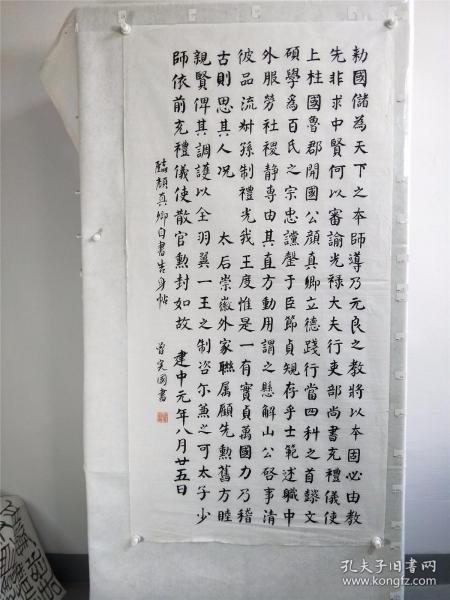 勑國儲為天下之本師導乃元良之教將以本固必由教
先非求中賢何以審諭光祿大夫行吏部尚書充禮儀使
上柱國魯郡開國公顏真卿立德踐行當四科之首懿文
碩學為百氏之宗忠讜罄于臣節貞規存乎士範述職中
外服勞社稷静專由其直方動用謂之懸解山公啓事清
彼品流叔孫制禮光我王度惟是一有實貞萬國力乃稽
古則思其人况 太后崇徽外家聯属顧先勲舊方睦
親賢俾其調護以全羽翼一王之制咨尔兼之可太子少
師依前充禮儀使散官勲封如故 建中元年八月廿五日
臨顏真卿自書告身帖 國書
孔夫子旧书网
www.kongfz.com